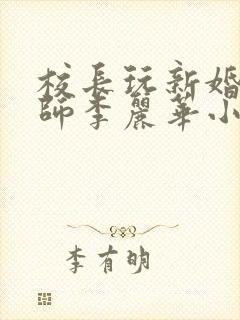 校長玩新婚
師李麗華小
李有明